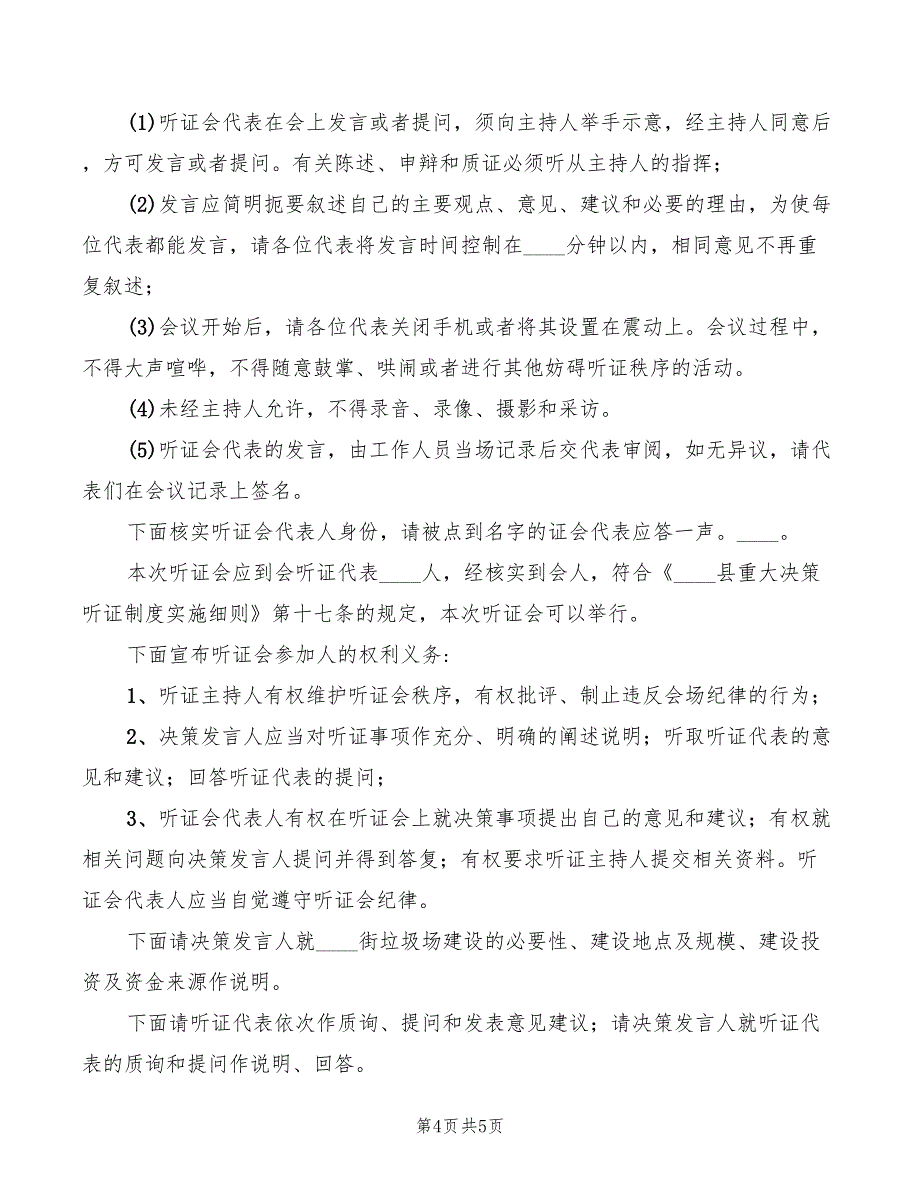 (1)听证会代表在会上发言或者提问，须向主持人举手示意，经主持人同意后
，方可发言或者提问。有关陈述、申辩和质证必须听从主持人的指挥；
(2)发言应简明扼要叙述自己的主要观点、意见、建议和必要的理由，为使每
位代表都能发言，请各位代表将发言时间控制在____分钟以内，相同意见不再重
复叙述；
(3)会议开始后，请各位代表关闭手机或者将其设置在震动上。会议过程中，
不得大声喧哗，不得随意鼓掌、哄闹或者进行其他妨碍听证秩序的活动。
(4)未经主持人允许，不得录音、录像、摄影和采访。
(5)听证会代表的发言，由工作人员当场记录后交代表审阅，如无异议，请代
表们在会议记录上签名。
下面核实听证会代表人身份，请被点到名字的证会代表应答一声。____。
本次听证会应到会听证代表____人，经核实到会人，符合《____县重大决策
听证制度实施细则》第十七条的规定，本次听证会可以举行。
下面宣布听证会参加人的权利义务:
1、听证主持人有权维护听证会秩序，有权批评、制止违反会场纪律的行为；
2、决策发言人应当对听证事项作充分、明确的阐述说明；听取听证代表的意
见和建议；回答听证代表的提问；
3、听证会代表人有权在听证会上就决策事项提出自己的意见和建议；有权就
相关问题向决策发言人提问并得到答复；有权要求听证主持人提交相关资料。听
证会代表人应当自觉遵守听证会纪律。
下面请决策发言人就____街垃圾场建设的必要性、建设地点及规模、建设投
资及资金来源作说明。
下面请听证代表依次作质询、提问和发表意见建议；请决策发言人就听证代
表的质询和提问作说明、回答。
第4页共5页